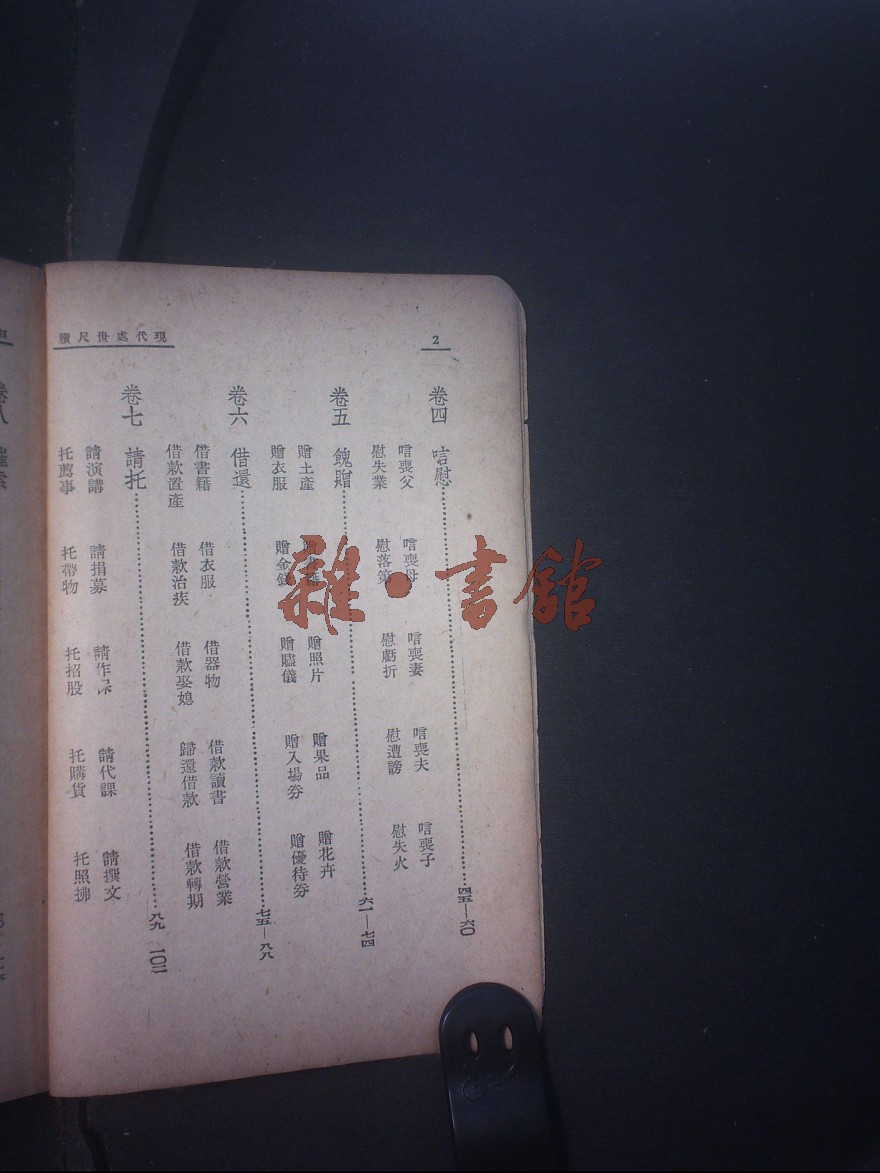 現代處世尺牘
2
卷四 唁慰……四五—六〇
唁喪父 唁喪母 唁喪妻 唁喪夫 唁喪子
慰失業 慰落第 慰虧折 慰遭謗 慰失火
卷五 餽贈……六一—七四
贈土產 贈照片 贈果品 贈花卉
贈衣服 贈金錢 贈贐儀 贈入場券 贈優待券
卷六 借還……七五—八八
借書籍 借衣服 借器物 借款讀書 借款營業
借款置產 借款治疾 借款娶媳 歸還借款 借款轉期
卷七 請托……八九 一〇二
請演講 請捐募 請作 請代課 請撰文
托薦事 托帶物 托招股 托購貨 托照拂
雜·書館